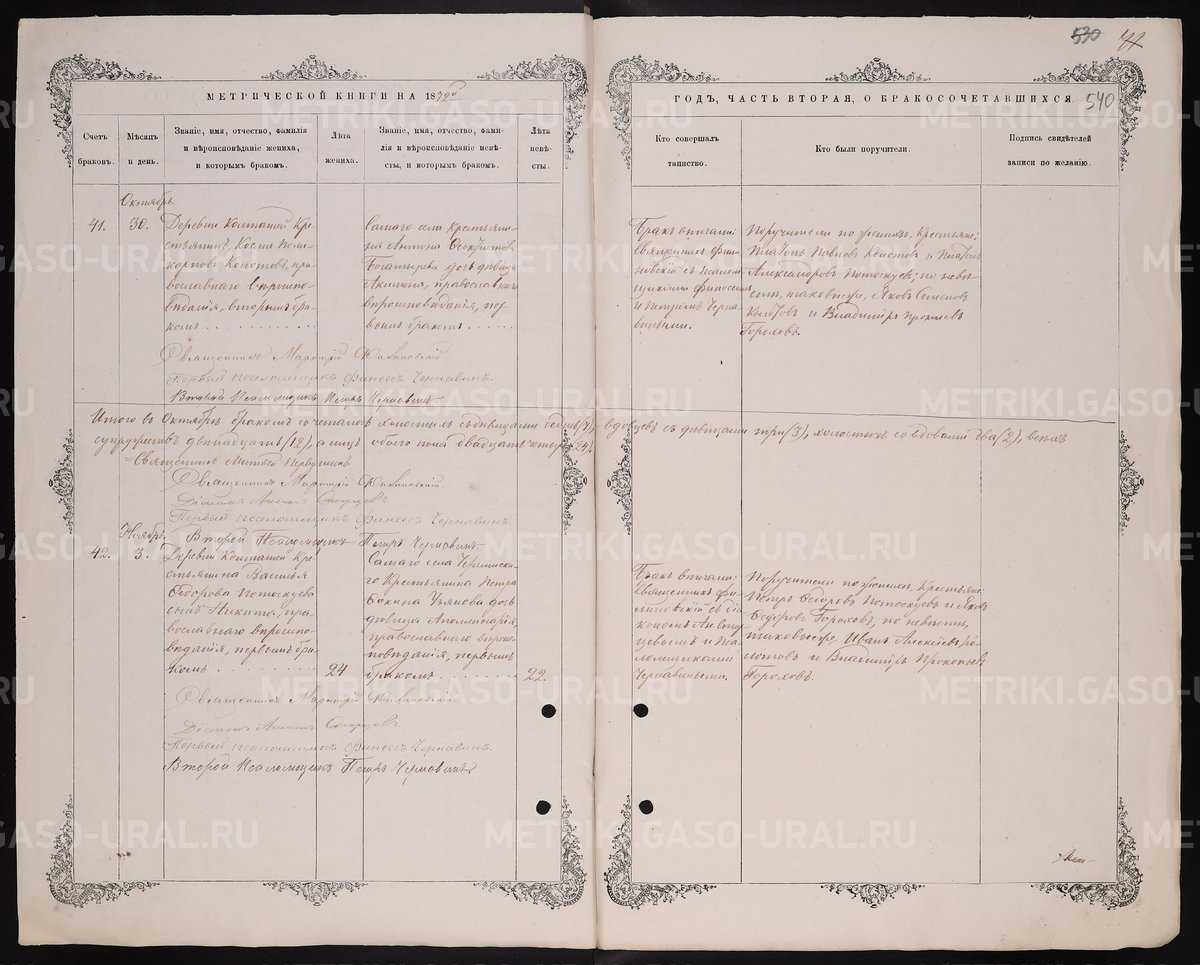 530 41
МЕТРИЧЕСКОЙ КНИГИ НА 1872й
ГОДЪ, ЧАСТЬ ВТОРАЯ, О БРАКОСОЧЕТАВШИХСЯ. 540
Счетъ браковъ.
Мѣсяцъ и день.
Званіе, имя, отчество, фамилія
и вѣроисповѣданіе жениха,
и которымъ бракомъ.
Лѣта жениха.
Званіе, имя, отчество, фами-
лія и вѣроисповѣданіе невѣ-
сты, и которымъ бракомъ.
Лѣта невѣ-
сты.
Кто совершалъ
таинство.
Кто были поручители.
Подпись свидѣтелей
записи по желанію.
Октябрь.
41.
30.
Деревни Колташей Кре-
стьянинъ, Косма Поли-
карповъ Колотовъ, пра-
вославнаго вѣроиспо-
вѣданія, вторымъ бра-
комъ
Самаго села Крестьяни-
на Антона
Богатырева дочь дѣвица
Акилина, православнаго
вѣроисповѣданія, пер-
вымъ бракомъ
Бракъ вѣнчали:
Священникъ
съ Псалом-
щиками Финеесомъ
и Петромъ Черна-
виными.
Поручители по женихѣ, Крестьяне:
Платонъ Павловъ и Платонъ
Александровъ Потоскуевъ; по невѣ-
стѣ, таковыеже, Яковъ Семеновъ
и Владиміръ Прокопьевъ
Гороховъ.
Священникъ Мартирій
Первый псаломщикъ Финеесъ Чернавинъ.
Второй Псаломщикъ Петръ Чернавинъ.
Итого въ Октябрѣ бракомъ сочеталось холостыхъ съ дѣвицами семь (7), вдовцевъ съ дѣвицами три (3), холостыхъ со вдовами два (2), всѣхъ
супружествъ двѣнадцать (12), а лицъ обоего пола двадцать четыре (24).
Священникъ
Священникъ Мартирій
Діаконъ
Первый псаломщикъ Финеесъ Чернавинъ.
Второй Псаломщикъ Петръ Чернавинъ.
Ноябрь.
42.
3.
Деревни Колташей Кре-
стьянина Василья
Ѳедорова Потоскуева
сынъ Никита, пра-
вославнаго вѣроиспо-
вѣданія, первымъ бра-
комъ
24
Самаго села Черемисска-
го Крестьянина Петра
Ѳокина Ульянова дочь
дѣвица Аполлинарія,
православнаго вѣрои-
повѣданія, первымъ
бракомъ
22.
Бракъ вѣнчали:
Священникъ
съ Діа-
кономъ
и Пса-
ломщиками
Чернавиными.
Поручители по женихѣ, Крестьяне:
Петръ Ѳедоровъ Потоскуевъ и Яковъ
Ѳедоровъ Гороховъ, по невѣстѣ,
таковыеже, Иванъ Алексѣевъ
и Владиміръ Прокопьевъ
Гороховъ.
Священникъ Мартирій
Діаконъ
Первый псаломщикъ Финеесъ Чернавинъ.
Второй Псаломщикъ Петръ Чернавинъ.
METRIKI.GASO-URAL.RU